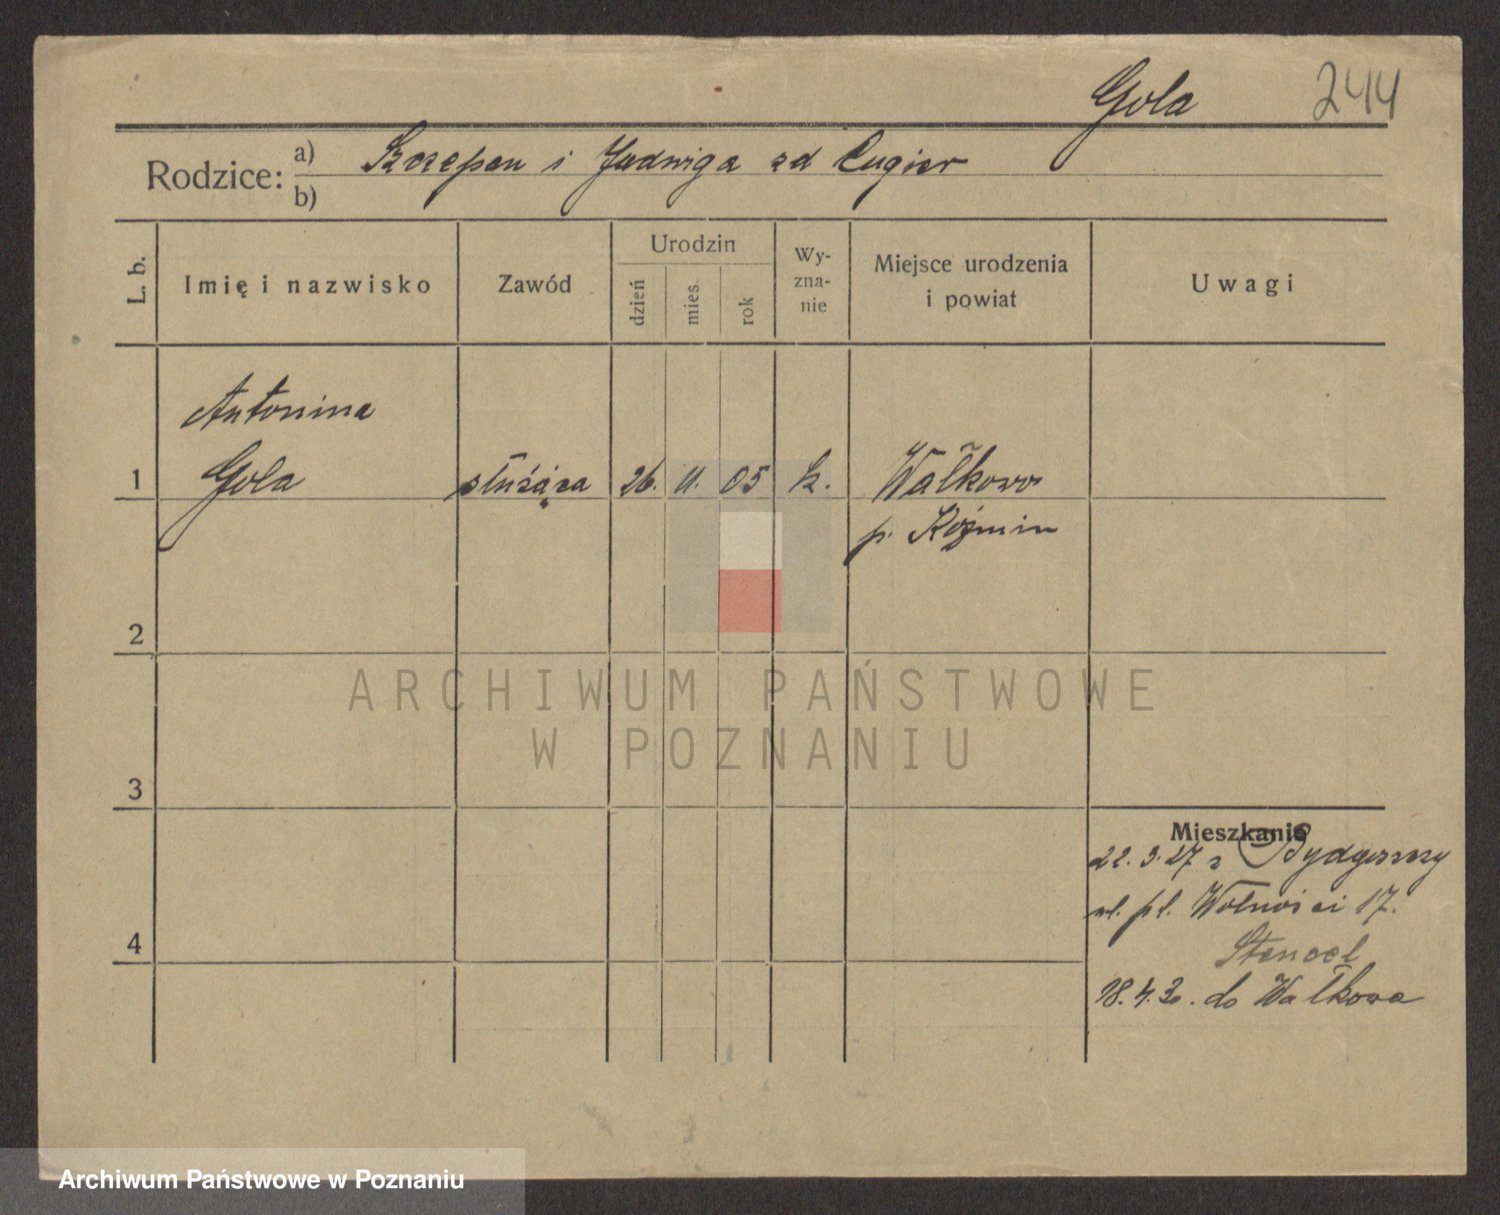 Gola 244
Rodzice: a) Szczepan i Jadwiga zd Cugier
b)
L. b. Imię i nazwisko Zawód Urodzin dzień mies. rok Wyznanie Miejsce urodzenia i powiat Uwagi
Antonina
1 Gola służąca 26. 11. 05 k. Wałkowo
p. Koźmin
2
ARCHIWUM PAŃSTWOWE
W POZNANIU
3
Mieszkania
22.3.27 z Bydgoszczy
ul. pl. Wolności 17.
4
Stencel
18.4.30. do Wałkowa
Archiwum Państwowe w Poznaniu